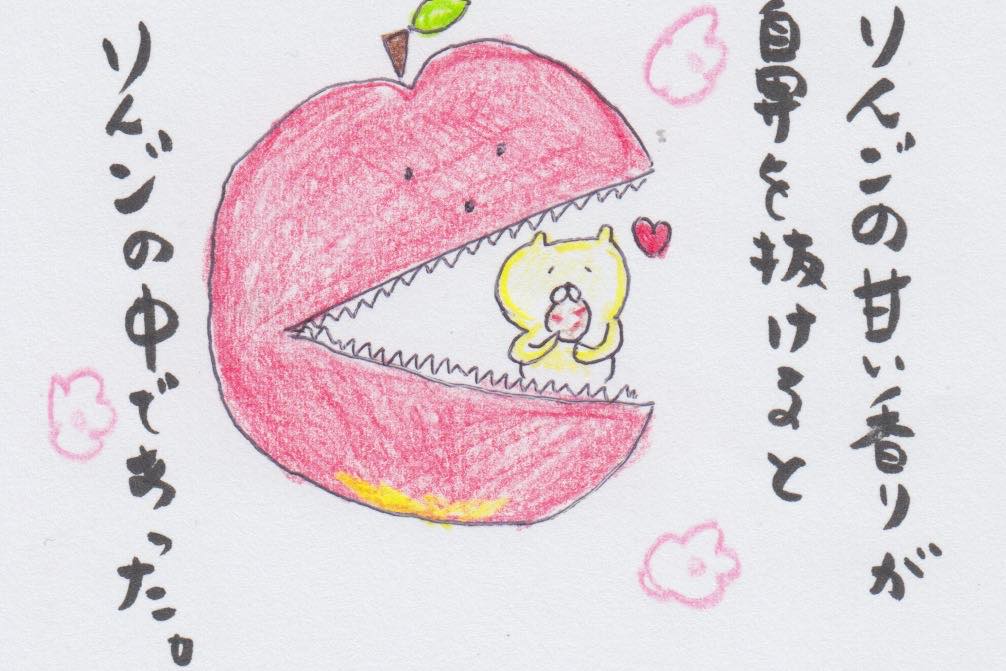 りんごの甘い香りが
鼻を抜けると
りんゴの中であった。